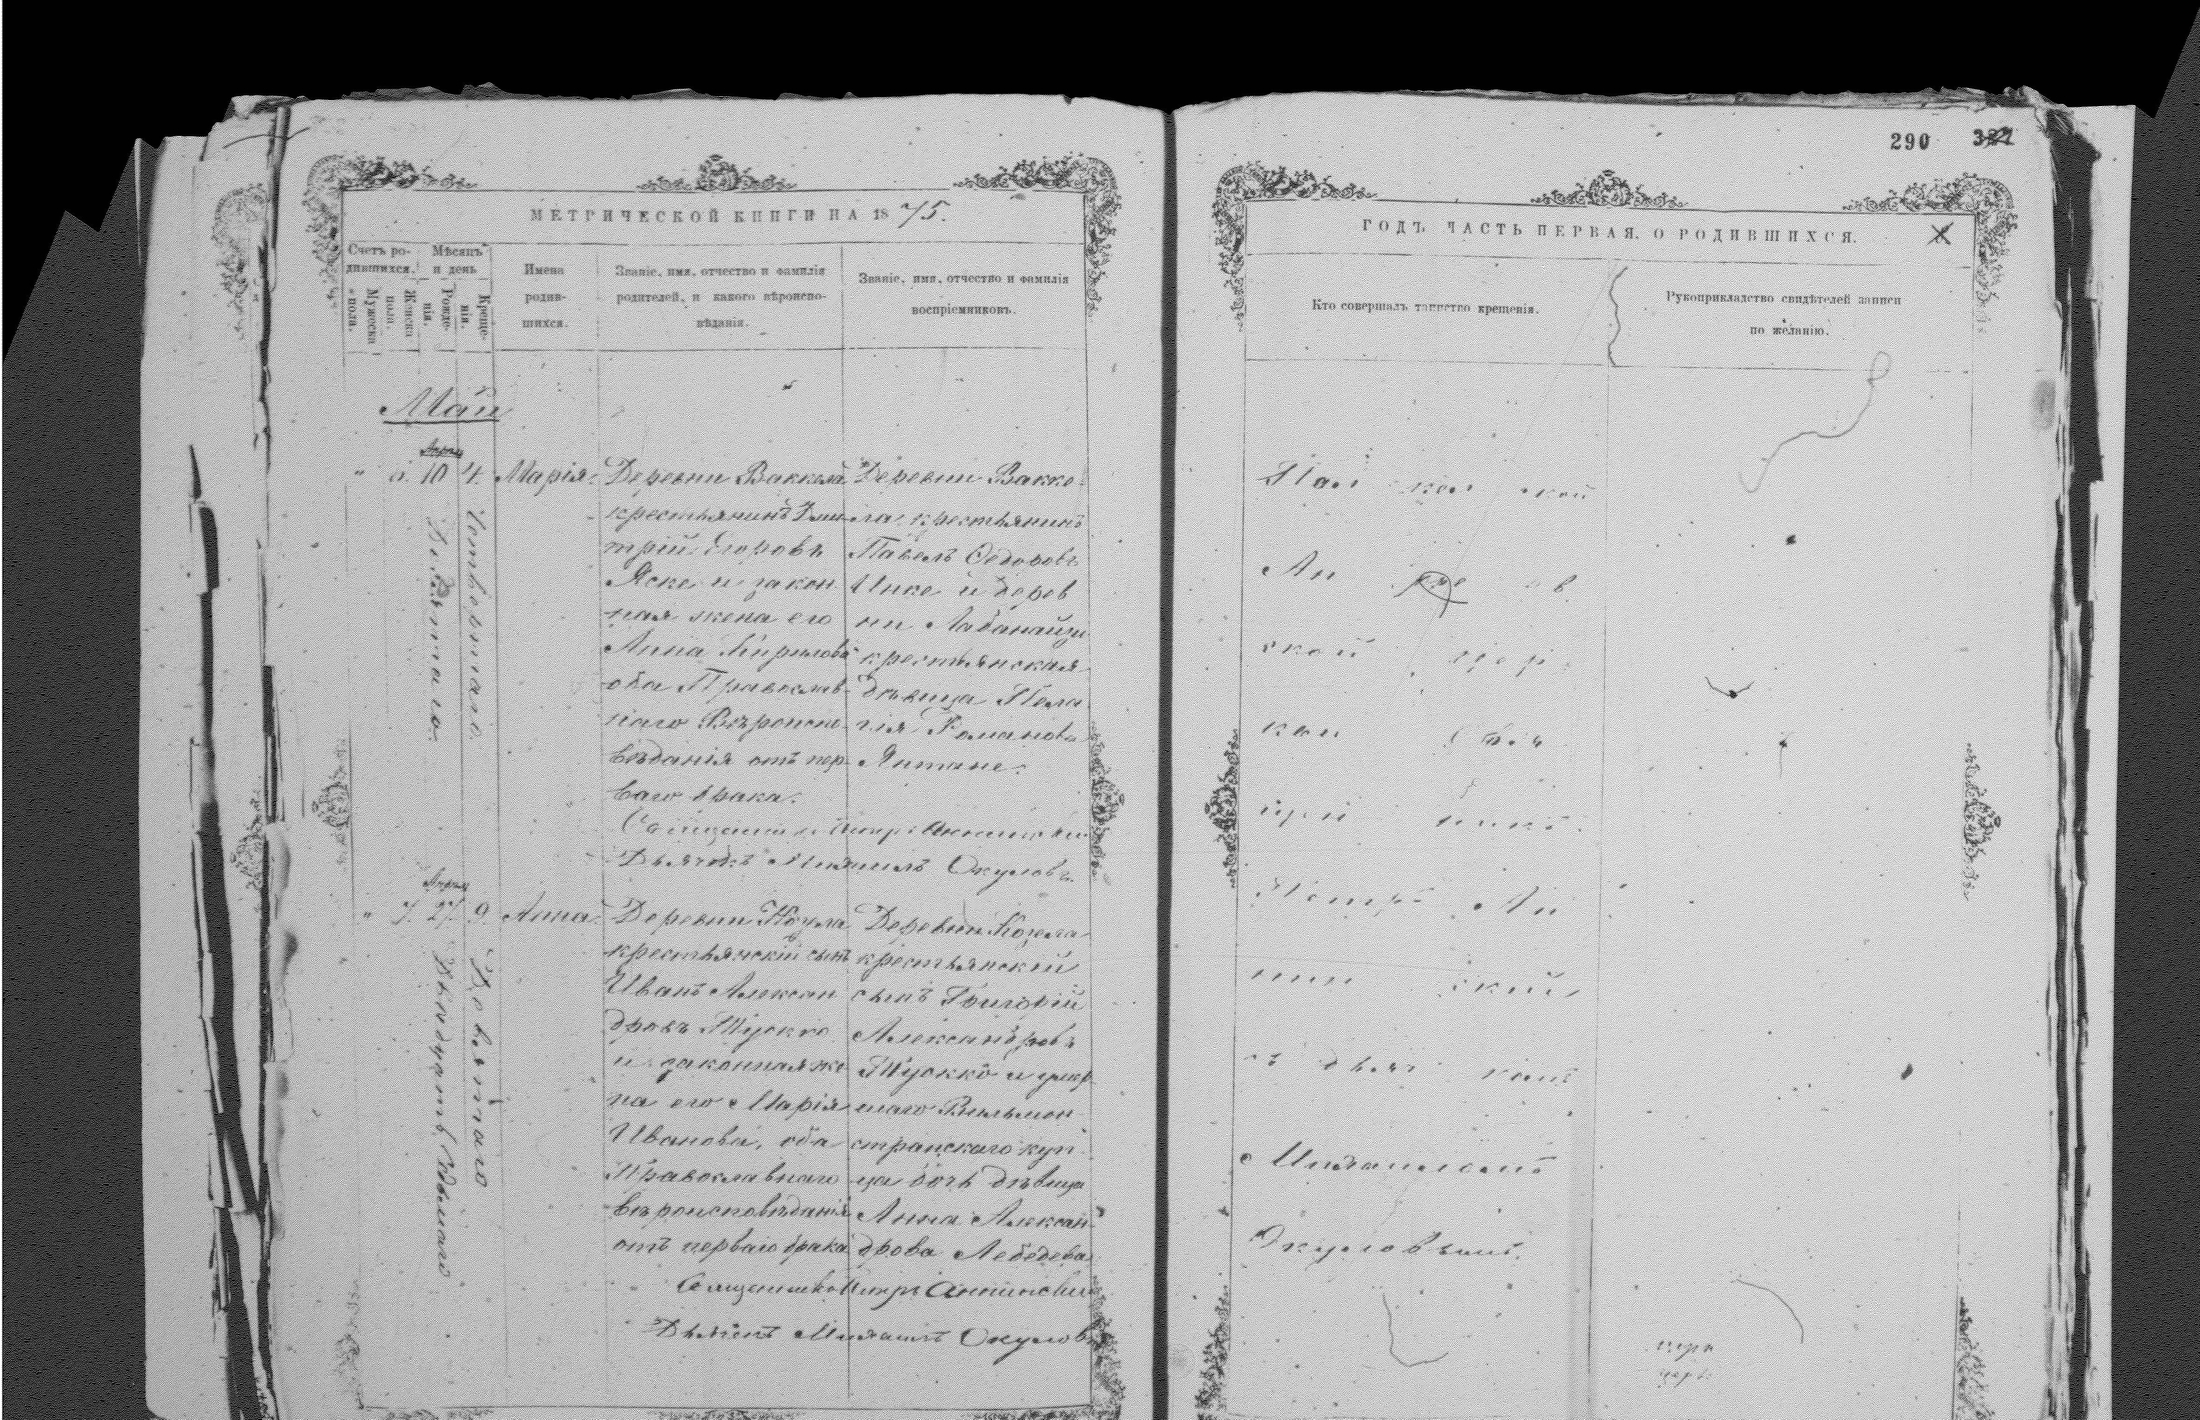 290 321
МЕТРИЧЕСКОЙ КНИГИ НА 1875.
Счетъ родившихся.
Мужеска пола.
Женска пола.
Мѣсяцъ и день
Рожденія.
Крещенія.
Имена
родив-
шихся.
Званіе, имя, отчество и фамилія
родителей, и какого вѣроиспо-
вѣданія.
Званіе, имя, отчество и фамилія
воспріемниковъ.
Май
Апрѣля
" 6. 10 4. Марія.
Десятаго.
Четвертаго.
Деревни Ваккела
крестьянинъ Дми-
трій Егоровъ
Яске и закон
ная жена его
Анна Кирилова
оба Православ-
наго Вѣроиспо-
вѣданія отъ пер-
ваго брака.
Деревни Вакке-
ла крестьянинъ
Павелъ Ѳедоровъ
Инке и дерев
ни
крестьянская
дѣвица Пела
гія Романова
Янтане.
Священникъ Петръ Аннинскій
Дьячокъ Михаилъ Окуловъ.
Апрѣля
" 7. 27. 9. Анна.
Двадцать седьмаго
Девятаго
Деревни
крестьянскій сынъ
Иванъ Алексан
дровъ Тіукко
и законная же
на его Марія
Иванова, оба
Православнаго
вѣроисповѣданія
отъ перваго брака
Деревни
крестьянскій
сынъ Григорій
Александровъ
Тіукко и умер
шаго Вильман
странскаго куп
ца дочь дѣвица
Анна Алексан
дрова Лебедева
Священникъ Петръ Аннинскій
Дьячокъ Михаилъ Окуловъ
ГОДЪ ЧАСТЬ ПЕРВАЯ, О РОДИВШИХСЯ.
Кто совершалъ таинство крещенія.
Рукоприкладство свидѣтелей записи
по желанію.
ской цер
кви свя
щен никъ
Петръ Ан
нин скій
съ дьяч комъ
Михаиломъ
Окуловымъ.